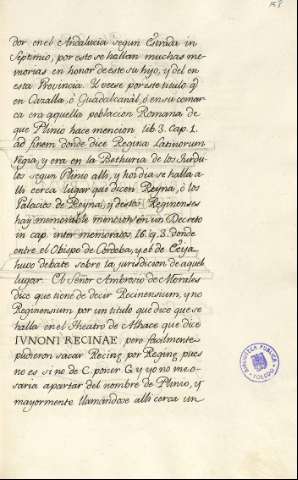 dor en el Andalucia segun Estrada in
Septemio, por este se hallan muchas me-
morias en honor de este su hijo, y del en
esta Provincia. Y vese por este titulo q̃
en Cazalla, ò Guadalcanal, ò en su comar
ca era aquella poblacion Romana de
que Plinio hace mencion lib. 3. Cap. 1.
ad finem donde dice Regina Latinorum
Regia, y era en la Bethuria de los Turdu-
los segun Plinio alli, y hoi dia se halla a
lli cerca lugar que dicen Reyna, ò los
Palacios de Reyna, y destos Reginenses
hay memorable mencion en un Decreto
in cap. inter memoratos. 16. q. 3. donde
entre el Obispo de Cordoba, y el de Ecija
huvo debate sobre la jurisdicion de aquel
lugar. El Señor Ambrosio de Morales
dice que tiene de decir Recinensium, y no
Reginensium por un titulo que dice que se
halla en el Theatro de que dice
IVNONI RECINAE, pero facilmente
pudieron sacar Recinę por Reginę, pues
no es si no de C. poner G. y yo no me o-
saria apartar del nombre de Plinio, y
mayormente llamandose alli cerca un
BIBLIOTECA PUBLICA
TOLEDO